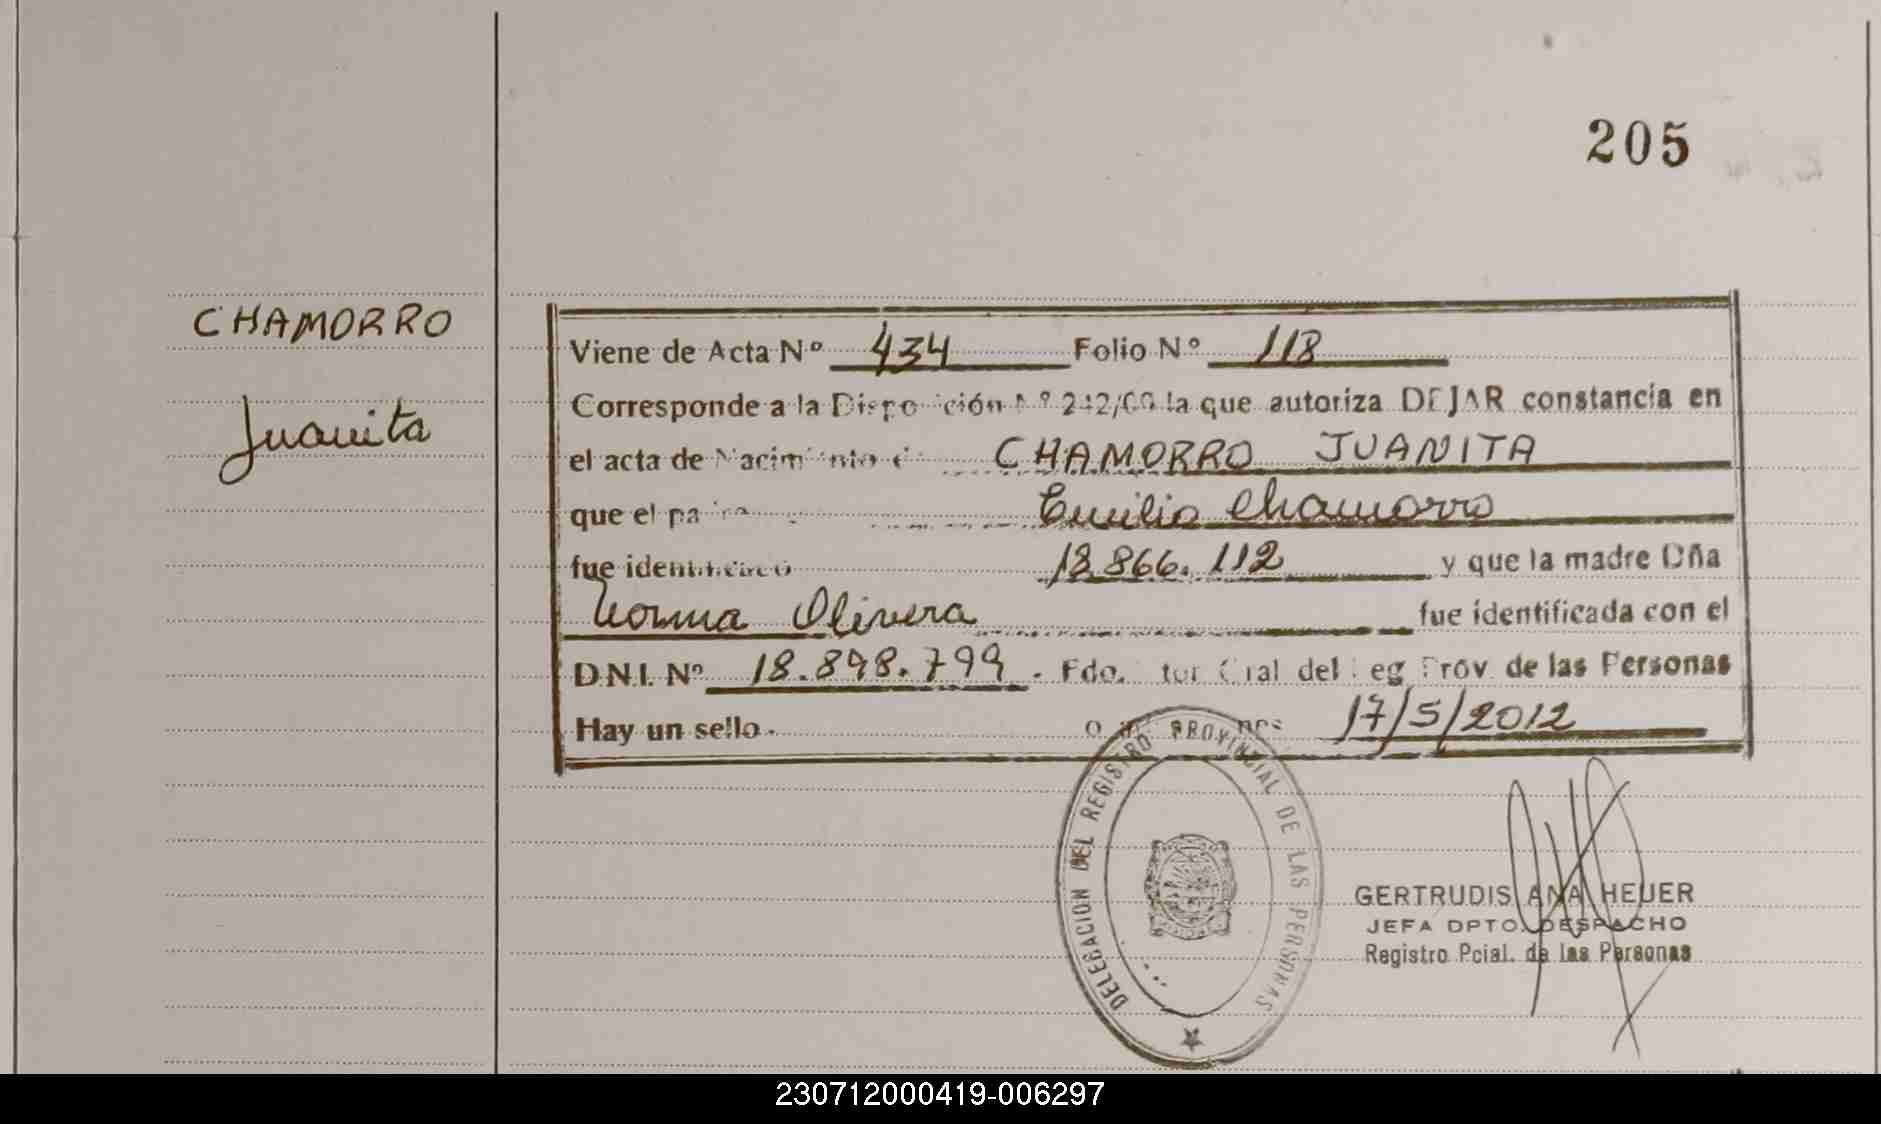 205
CHAMORRO
Juanita
Viene de Acta Nº 434 Folio Nº 118
Corresponde a la la que autoriza DEJAR constancia en
el acta de CHAMORRO JUANITA
que el Emilio Chamorro
fue 18.866.112 y que la madre Dña
Norma Olivera fue identificada con el
D.N.I. Nº 18.898.799. Fdo. del Prov de las Personas
Hay un sello. 17/5/2012
DELEGACION DEL REGISTRO PROVINCIAL DE LAS PERSONAS
GERTRUDIS ANA HEUER
JEFA DPTO. DESPACHO
Registro Pcial. de las Personas
230712000419-006297